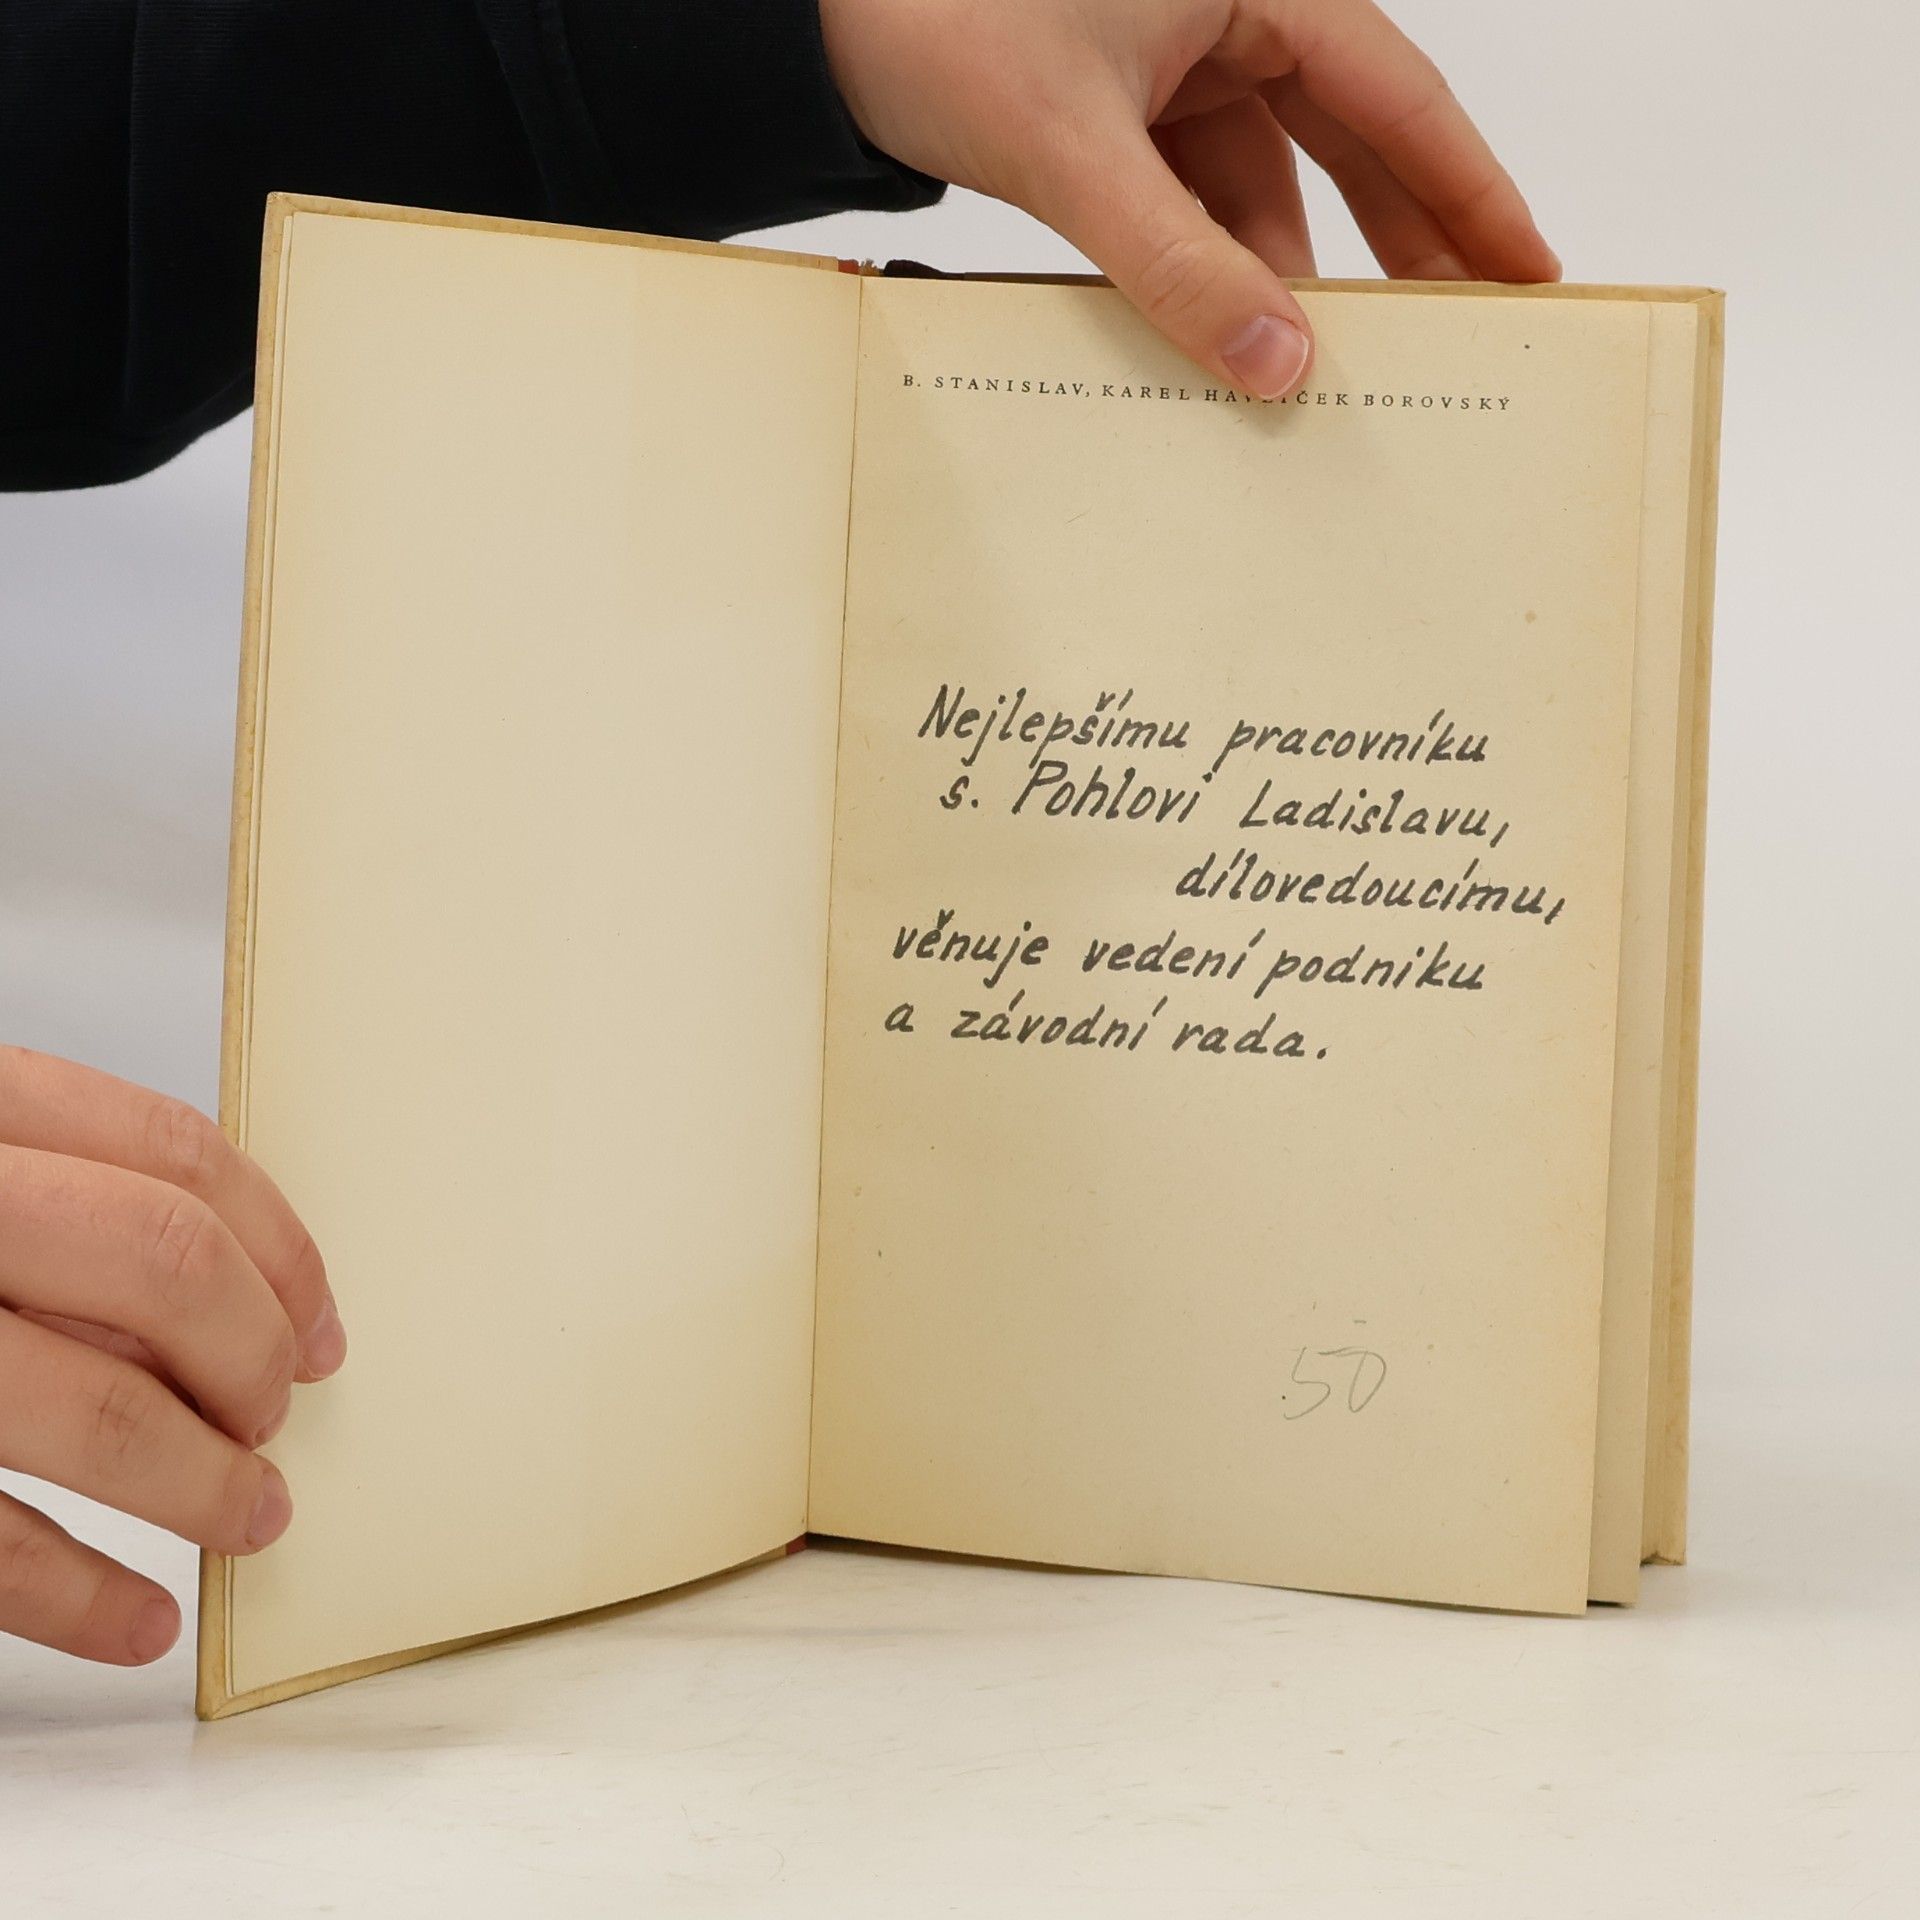 B. STANISLAV, KAREL HAVLÍČEK BOROVSKÝ
Nejlepšímu pracovníku
s. Pohlovi Ladislavu,
dílovedoucímu,
věnuje vedení podniku
a závodní rada.
50